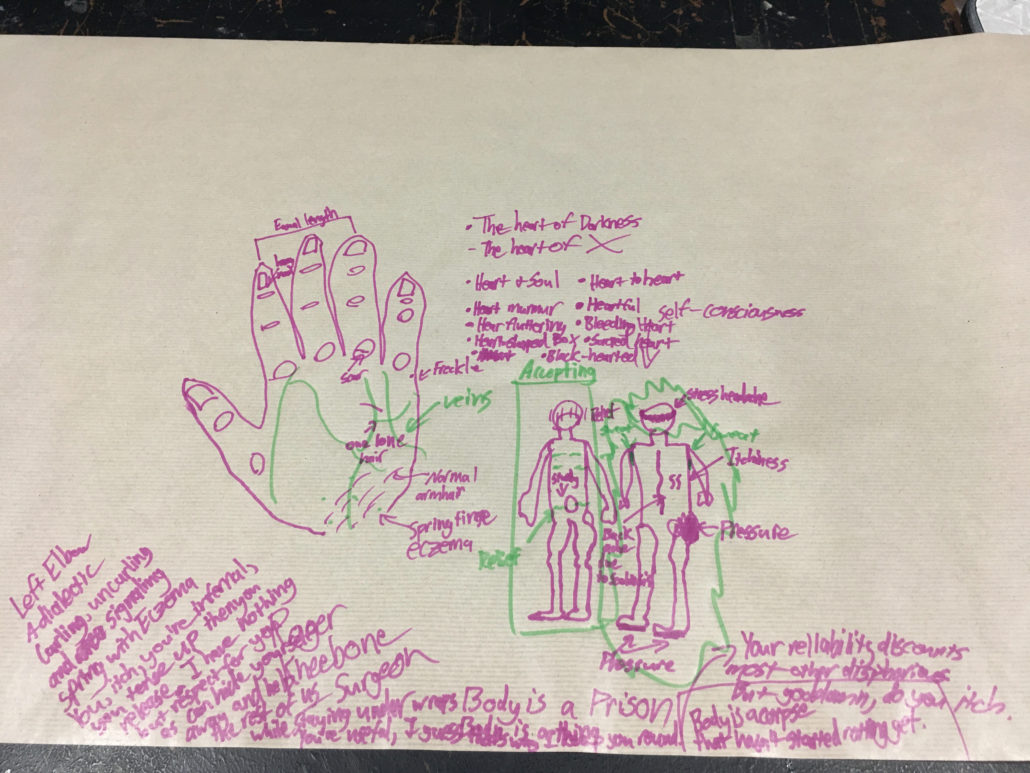 Equal length
scar
Freckle
veins
one lone
hair
Normal
armhair
Spring fringe
eczema
• The heart of Darkness
- The heart of X
• Heart & Soul
• Heart to heart
• Heart murmur
• Heartful
• Hear fluttering
• Bleeding Heart
• Heart-shaped Box
• Sacred Heart
• Black-hearted
self-consciousness
Accepting
Relief
Relief
stress headache
Support
Itchiness
Pressure
Back
Pressure
Left Elbow
A dialectic
Curling, uncurling
and signaling
spring with Eczema
You itch, you're infernal,
you tense up then you
release. I have nothing
but respect for you
as can hide yourself
away and help
the rest of us
while staying under wraps
You're useful, I guess
Kneebone
Surgeon
Body is a Prison
Body is a thing
that's why I keep you round
Body is a corpse
that hasn't started rotting yet.
Your reliability discounts
most other dysphorias
But goddamn, do you itch.